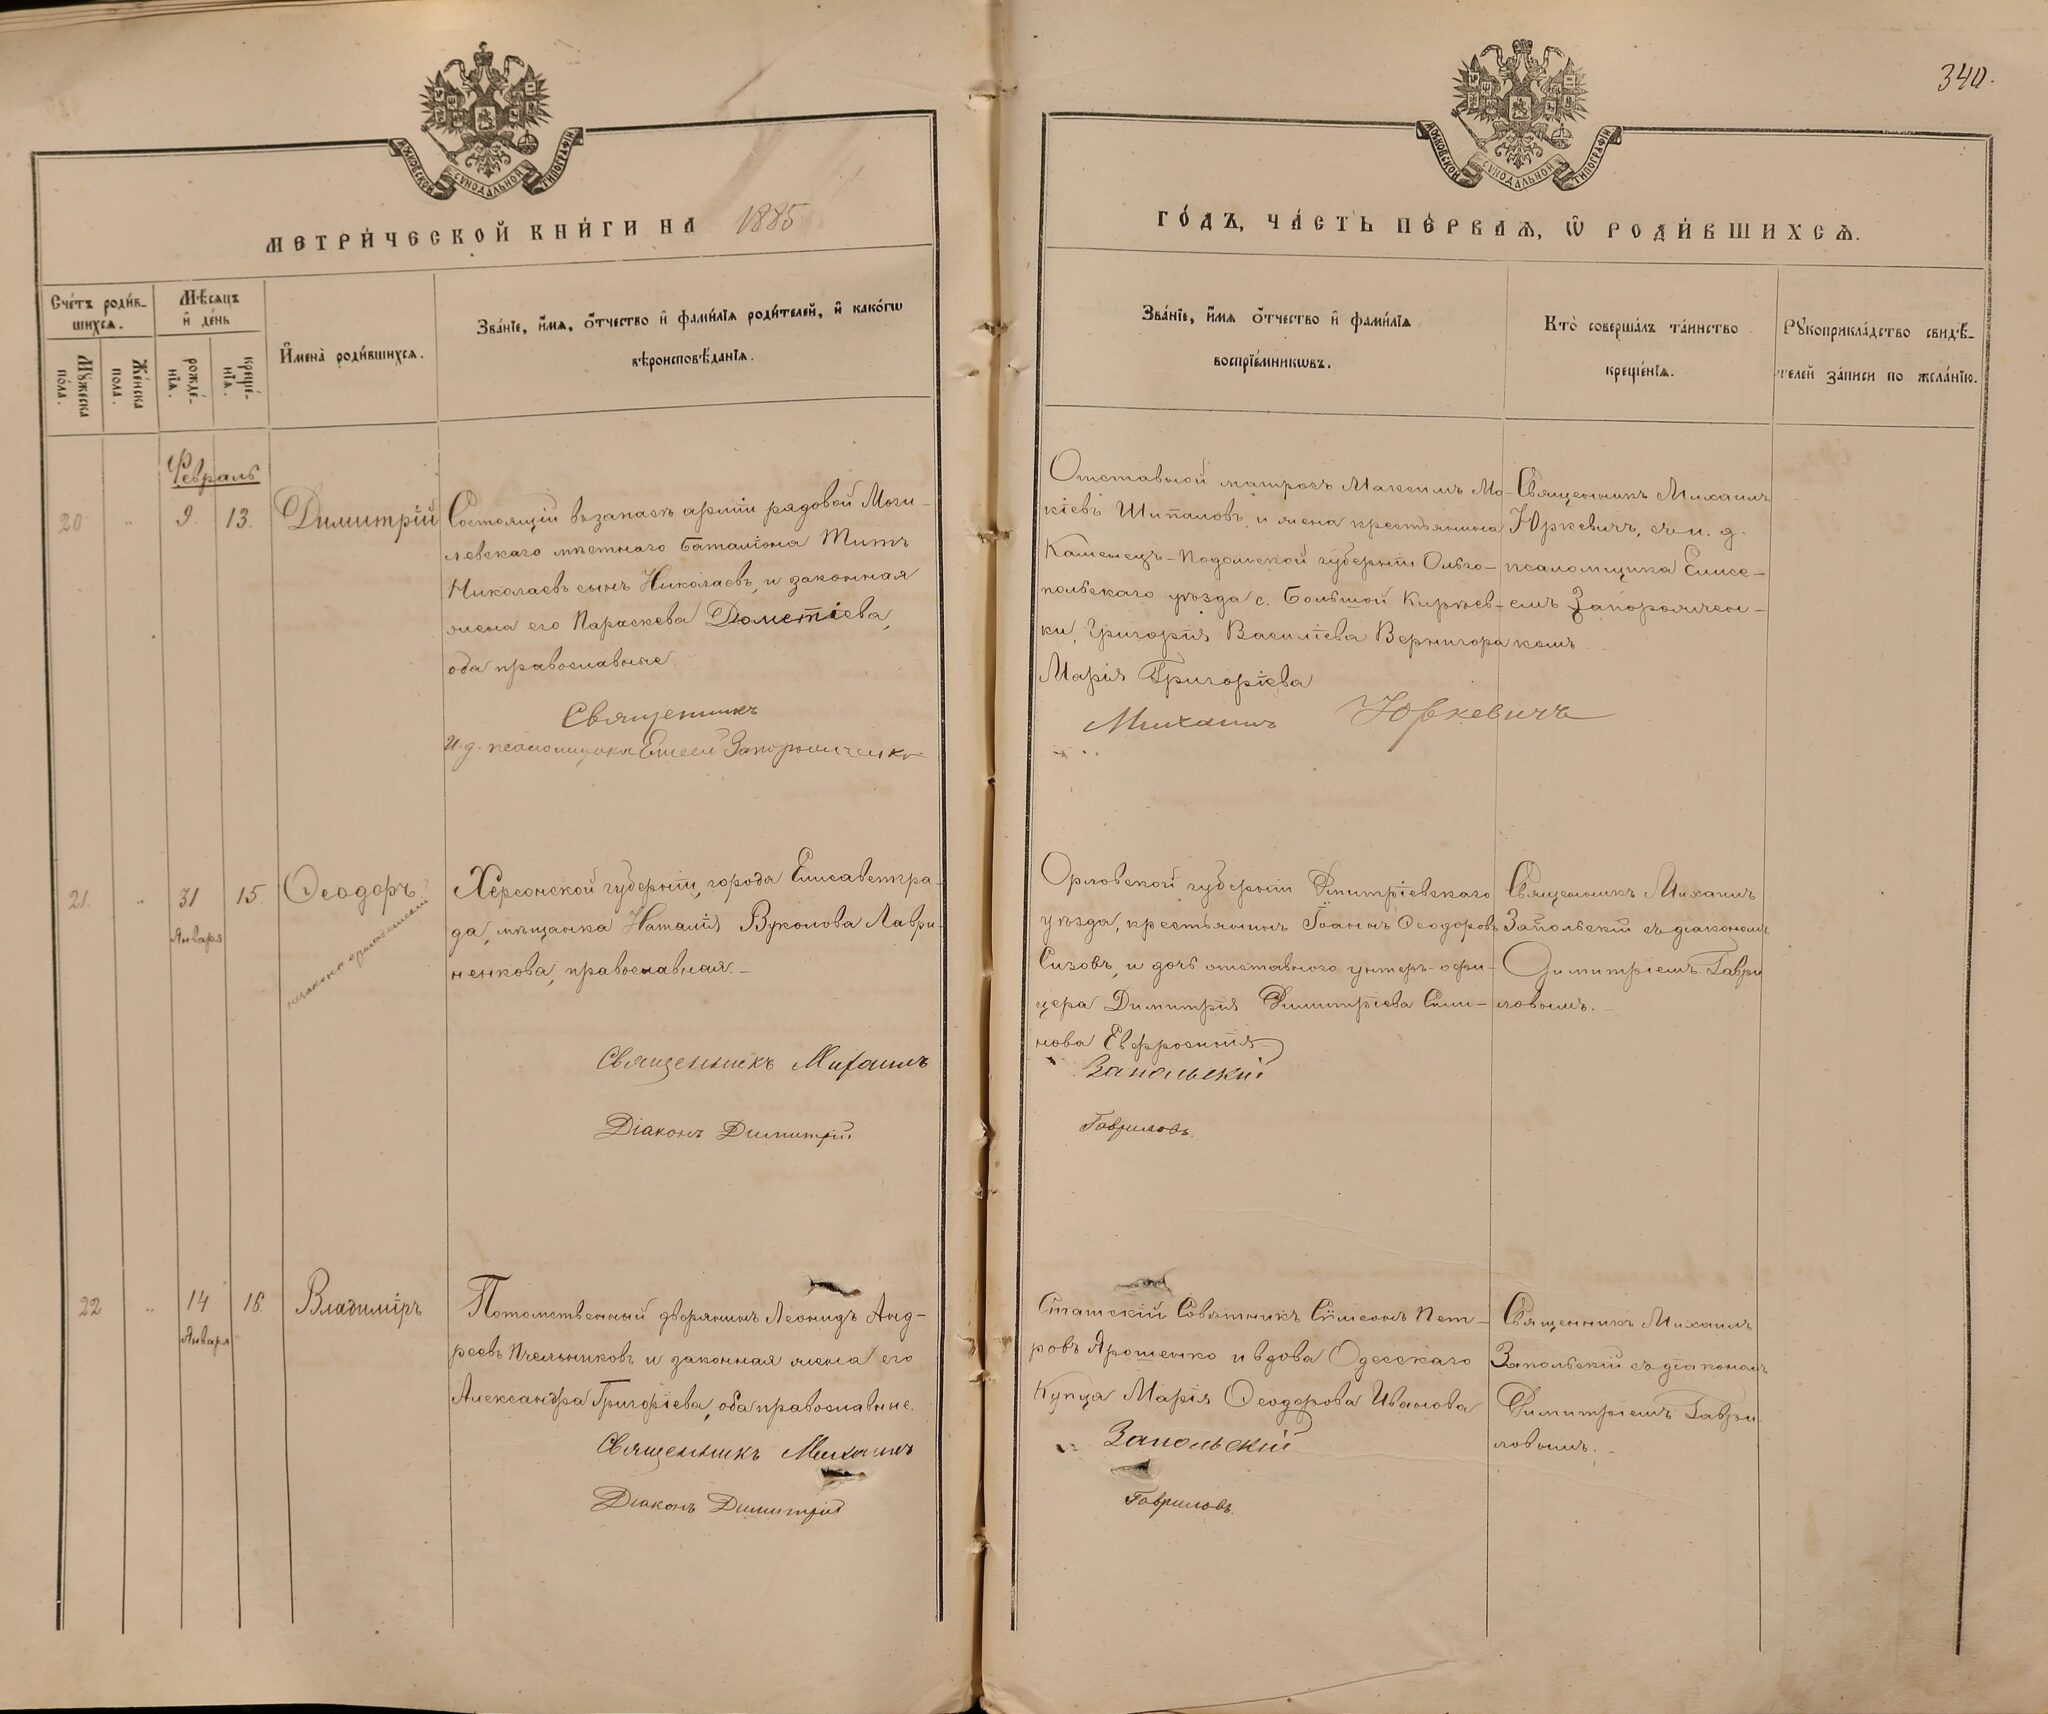 340.
МОСКОВСКОЙ СѴНОДАЛЬНОЙ ТИПОГРАФІИ
МОСКОВСКОЙ СѴНОДАЛЬНОЙ ТИПОГРАФІИ
МЕТРИ́ЧЕСКОЙ КНИ́ГИ НА 1885
ГО́ДЪ, ЧА́СТЬ ПЕ́РВАѦ, Ѽ РОДИ́ВШИХСѦ.
Сче́тъ роди́в-
шихсѧ.
Мꙋжеска по́ла.
Же́нска пола.
Мѣ́сѧцъ
и҆ де́нь
рожде́-
нїѧ.
креще́-
нїѧ.
И҆мена̀ роди́вшихсѧ.
Зва́нїе, и҆́мѧ, ѻ҆́тчество и҆ фами́лїѧ роди́телей, и҆ како́гѡ
вѣроисповѣ́данїѧ.
Зва́нїе, и҆́мѧ ѻ҆́тчество и҆ фами́лїѧ
воспрїе́мникѡвъ.
Кто̀ соверша́лъ та́инство
креще́нїѧ.
Рꙋкоприкла́дство свидѣ́-
телей за́писи по жела́нїю.
Февраль
20 " 9. 13. Димитрій
Состоящій въ запасѣ арміи рядовой Моги-
левскаго мѣстнаго баталіона Титъ
Николаевъ сынъ Николаевъ, и законная
жена его Параскева Дометіева,
оба православные
Священникъ
И. д. псаломщика Елисей Запорожченко
Отставной матросъ Максимъ Мо-
кіевъ Шипаловъ, и жена крестьянина
Каменецъ-Подольской губерніи Ольго-
польскаго уѣзда с. Большой Кирѣев-
ки, Григорія Василіева Вернигора
Марія Григоріева
Михаилъ Юркевичъ
Священникъ Михаилъ
Юркевичъ, съ и. д.
псаломщика Елисе-
емъ Запорожчен-
комъ.
21. " 31 15. Ѳеодоръ
Января
незаконнорожденный
Херсонской губерніи, города Елисаветгра-
да, мѣщанка Наталія Вуколова Лаври-
ненкова, православная.-
Священникъ Михаилъ
Діаконъ Димитрій
Орловской губерніи Дмитріевскаго
уѣзда, крестьянинъ Іоаннъ Ѳеодоровъ
Сизовъ, и дочь отставного унтеръ-офи-
цера Димитрія Димитріева Сели-
нова Евфросинія
Запольскій
Гавриловъ.
Священникъ Михаилъ
Запольскій съ діакономъ
Димитріемъ Гаври
ловымъ.-
22 " 14 16. Владиміръ
Января
Потомственный дворянинъ Леонидъ Анд-
реевъ Пчельниковъ и законная жена его
Александра Григоріева, оба православные.
Священникъ Михаилъ
Діаконъ Димитрій
Статскій Совѣтникъ Сѵмеонъ Пет-
ровъ Ярошенко и вдова Одесскаго
Купца Марія Ѳеодорова Иванова
Запольскій
Гавриловъ.
Священникъ Михаилъ
Запольскій съ діакономъ
Димитріемъ Гаври-
ловымъ.-